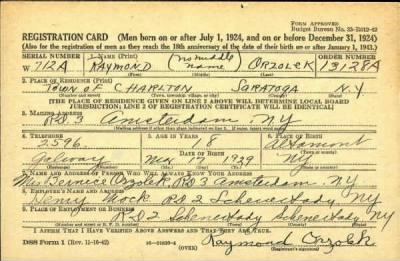 FORM APPROVED
Budget Bureau No. 33-R012-42
REGISTRATION CARD (Men born on or after July 1, 1924, and on or before December 31, 1924)
(Also for the registration of men as they reach the 18th anniversary of the date of their birth on or after January 1, 1943.)
SERIAL NUMBER 1. NAME (Print) (no middle name) ORDER NUMBER
W 712A RAYMOND ORZOLEK 13128A
(First) (Middle) (Last)
2. PLACE OF RESIDENCE (Print)
TOWN OF CHARLTON SARATOGA N.Y.
(Number and street) (Town, township, village, or city) (County) (State)
[THE PLACE OF RESIDENCE GIVEN ON LINE 2 ABOVE WILL DETERMINE LOCAL BOARD
JURISDICTION; LINE 2 OF REGISTRATION CERTIFICATE WILL BE IDENTICAL]
3. MAILING ADDRESS
RD 3 Amsterdam NY
[Mailing address if other than place indicated on line 2. If same, insert word same]
4. TELEPHONE 5. AGE IN YEARS 6. PLACE OF BIRTH
2596 18 Altamont
DATE OF BIRTH
Galway 17 NY
7. NAME AND ADDRESS OF PERSON WHO WILL ALWAYS KNOW YOUR ADDRESS
Bernice Orzolek RD 3 Amsterdam NY
8. EMPLOYER'S NAME AND ADDRESS
Henry RD 2 Schenectady NY
9. PLACE OF EMPLOYMENT OR BUSINESS
RD 2 Schenectady Schenectady NY
I AFFIRM THAT I HAVE VERIFIED ABOVE ANSWERS AND THAT THEY ARE TRUE.
DSS Form 1 (Rev. 11-16-42) (OVER) Raymond Orzolek
(Registrant's signature)